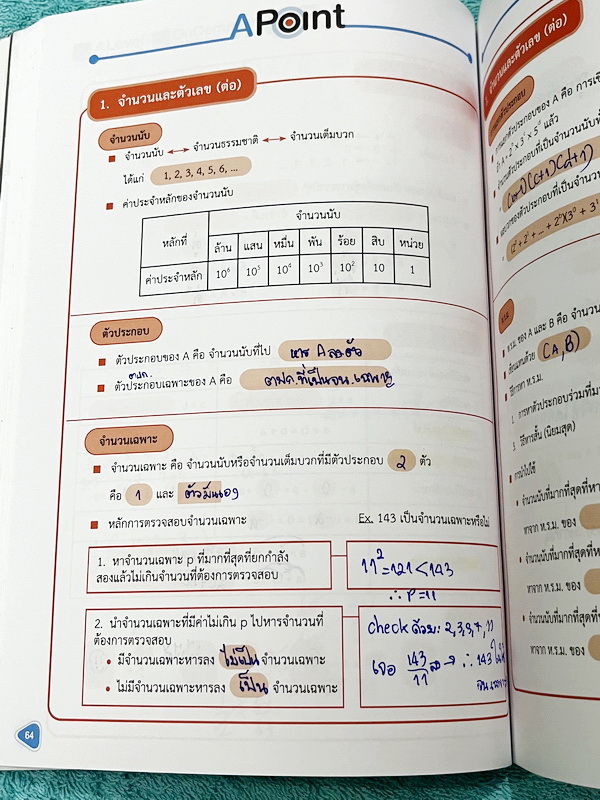 APoint
1. จำนวนและตัวเลข (ต่อ)
จำนวนนับ
จำนวนนับ ↔ จำนวนธรรมชาติ ↔ จำนวนเต็มบวก
ได้แก่ 1, 2, 3, 4, 5, 6, ...
ค่าประจำหลักของจำนวนนับ
หลักที่ จำนวนนับ
ล้าน แสน หมื่น พัน ร้อย สิบ หน่วย
ค่าประจำหลัก 10⁶ 10⁵ 10⁴ 10³ 10² 10 1
ตัวประกอบ
ตัวประกอบของ A คือ จำนวนนับที่ไป หาร A ลงตัว
ตัวประกอบเฉพาะของ A คือ ตปก.ที่เป็นจน.เฉพาะ
จำนวนเฉพาะ
จำนวนเฉพาะ คือ จำนวนนับหรือจำนวนเต็มบวกที่มีตัวประกอบ 2 ตัว
คือ 1 และ ตัวมันเอง
หลักการตรวจสอบจำนวนเฉพาะ Ex. 143 เป็นจำนวนเฉพาะหรือไม่
1. หาจำนวนเฉพาะ p ที่มากที่สุดที่ยกกำลัง
สองแล้วไม่เกินจำนวนที่ต้องการตรวจสอบ
11² = 121 < 143
∴ P = 11
2. นำจำนวนเฉพาะที่มีค่าไม่เกิน p ไปหารจำนวนที่
ต้องการตรวจสอบ
มีจำนวนเฉพาะหารลง ไม่เป็น จำนวนเฉพาะ
ไม่มีจำนวนเฉพาะหารลง เป็น จำนวนเฉพาะ
check ด้วย : 2,3,5,7,11
เจอ 143/11 ∴ 143
64
1. จำนวนและตัวเลข (ต่อ)
ตัวประกอบของ A คือ
แล้ว
ห.ร.ม.
ห.ร.ม. ของ A และ B คือ จำนวน
เขียนแทนด้วย (A, B)
วิธีการหา ห.ร.ม.
1. การหาตัวประกอบร่วมที่มา
วิธีหารสั้น (นิยมสุด)
การนำไปใช้
จำนวนนับที่มากที่สุดที่หา
หาจาก ห.ร.ม. ของ
จำนวนนับที่มากที่สุดที่ห
หาจาก ห.ร.ม. ของ
จำนวนนับที่มากที่สุดที่ห
หาจาก ห.ร.ม. ของ